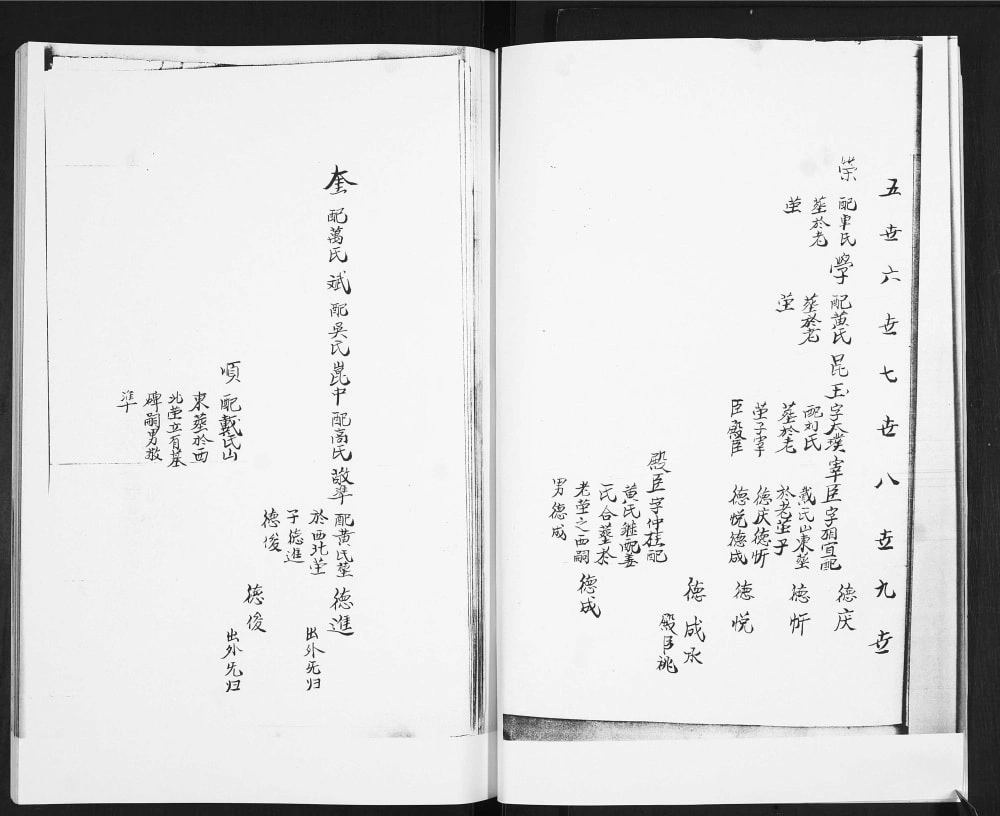 五世六世七世八世九世
荣
配車氏
葬於老
茔
學
配黄氏
葬於老
茔
昆玉
字大璞
配刘氏
葬於老
茔子宰
臣殿臣
宰臣
字相宜配
戴氏山東葬
於老茔子
德庆德忻
德悦德成
德庆
德忻
德悦
德成承
殿臣祧
殿臣
字仲桂配
黄氏継配姜
氏合葬於
老茔之西嗣
男德成
德成
奎
配萬氏
斌
配吳氏
崑中
配高氏
敬準
配黄氏葬
於西北茔
子德進
德俊
德進
出外無归
德俊
出外無归
順
配戴氏山
東葬於西
北茔立有墓
碑嗣男敬
準